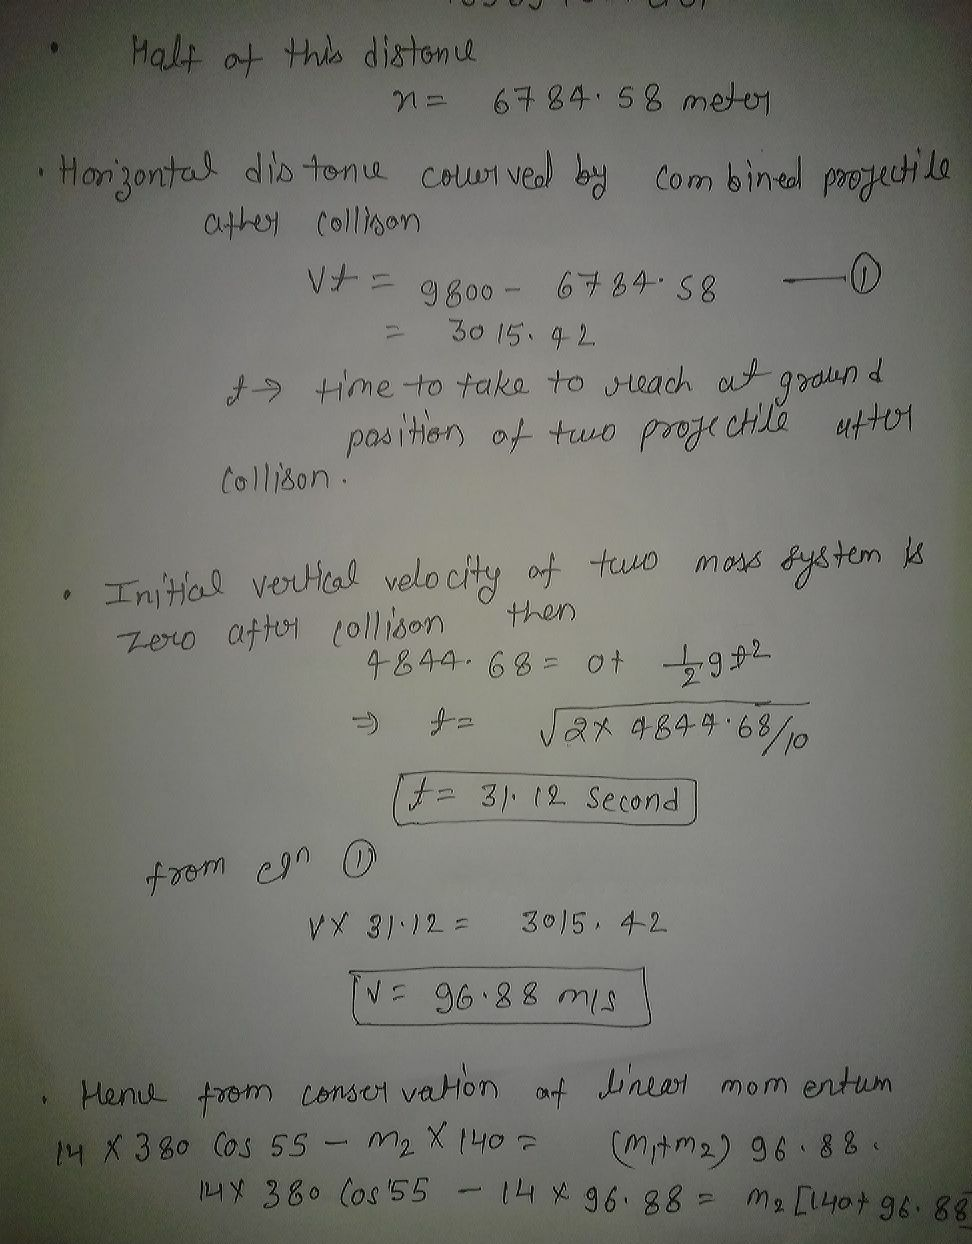 • Half of this distance
x = 6784.58 meter
• Horizontal distance courved by combined projectile
after collison
vt = 9800 - 6784.58 —— ①
= 3015.42
t → time to take to reach at ground
position of two projectile after
collison.
• Initial vertical velocity of two mass system is
zero after collison then
4844.68 = 0 + 1/2 gt²
⇒ t = √2 × 4844.68/10
t = 31.12 Second
from eqn ①
V × 31.12 = 3015.42
V = 96.88 m/s
• Hence from conservation of linear momentum
14 × 380 Cos 55 - m₂ × 140 = (m₁+m₂) 96.88.
14 × 380 Cos 55 - 14 × 96.88 = m₂ [140 + 96.88